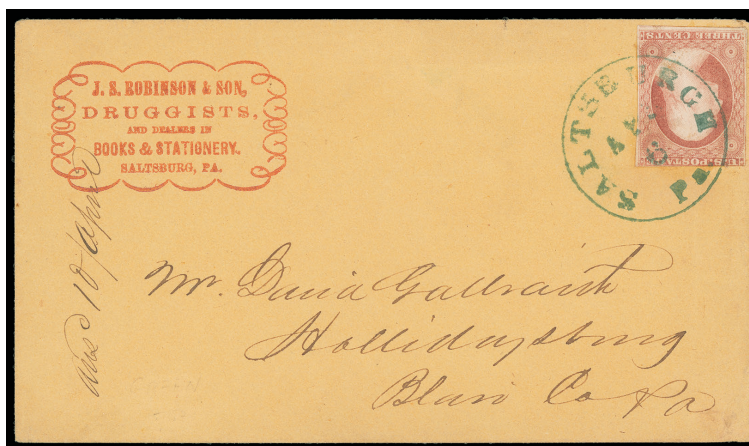 J. S. ROBINSON & SON,
DRUGGISTS,
AND DEALERS IN
BOOKS & STATIONERY.
SALTSBURG, PA.
SALTSBURGH Pa.
THREE CENTS
U.S. POSTAGE
Ans 10 April
Mr. David Galbraith
Hollidaysburg
Blair Co Pa